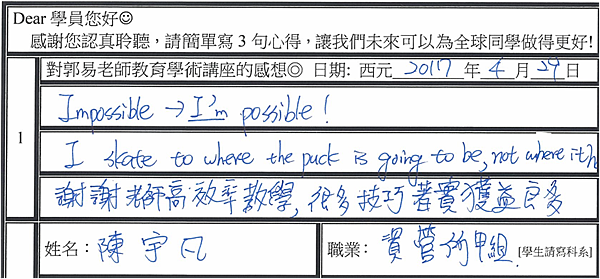 Dear 學員您好☺
感謝您認真聆聽，請簡單寫 3 句心得，讓我們未來可以為全球同學做得更好!
對郭易老師教育學術講座的感想◎ 日期: 西元 2017 年 4 月 29 日
1
Impossible → I'm possible!
I skate to where the puck is going to be, not where it h
謝謝老師高效率教學, 很多技巧 着實獲益良多
姓名：陳宇凡 職業： 資管所甲組 [學生請寫科系]